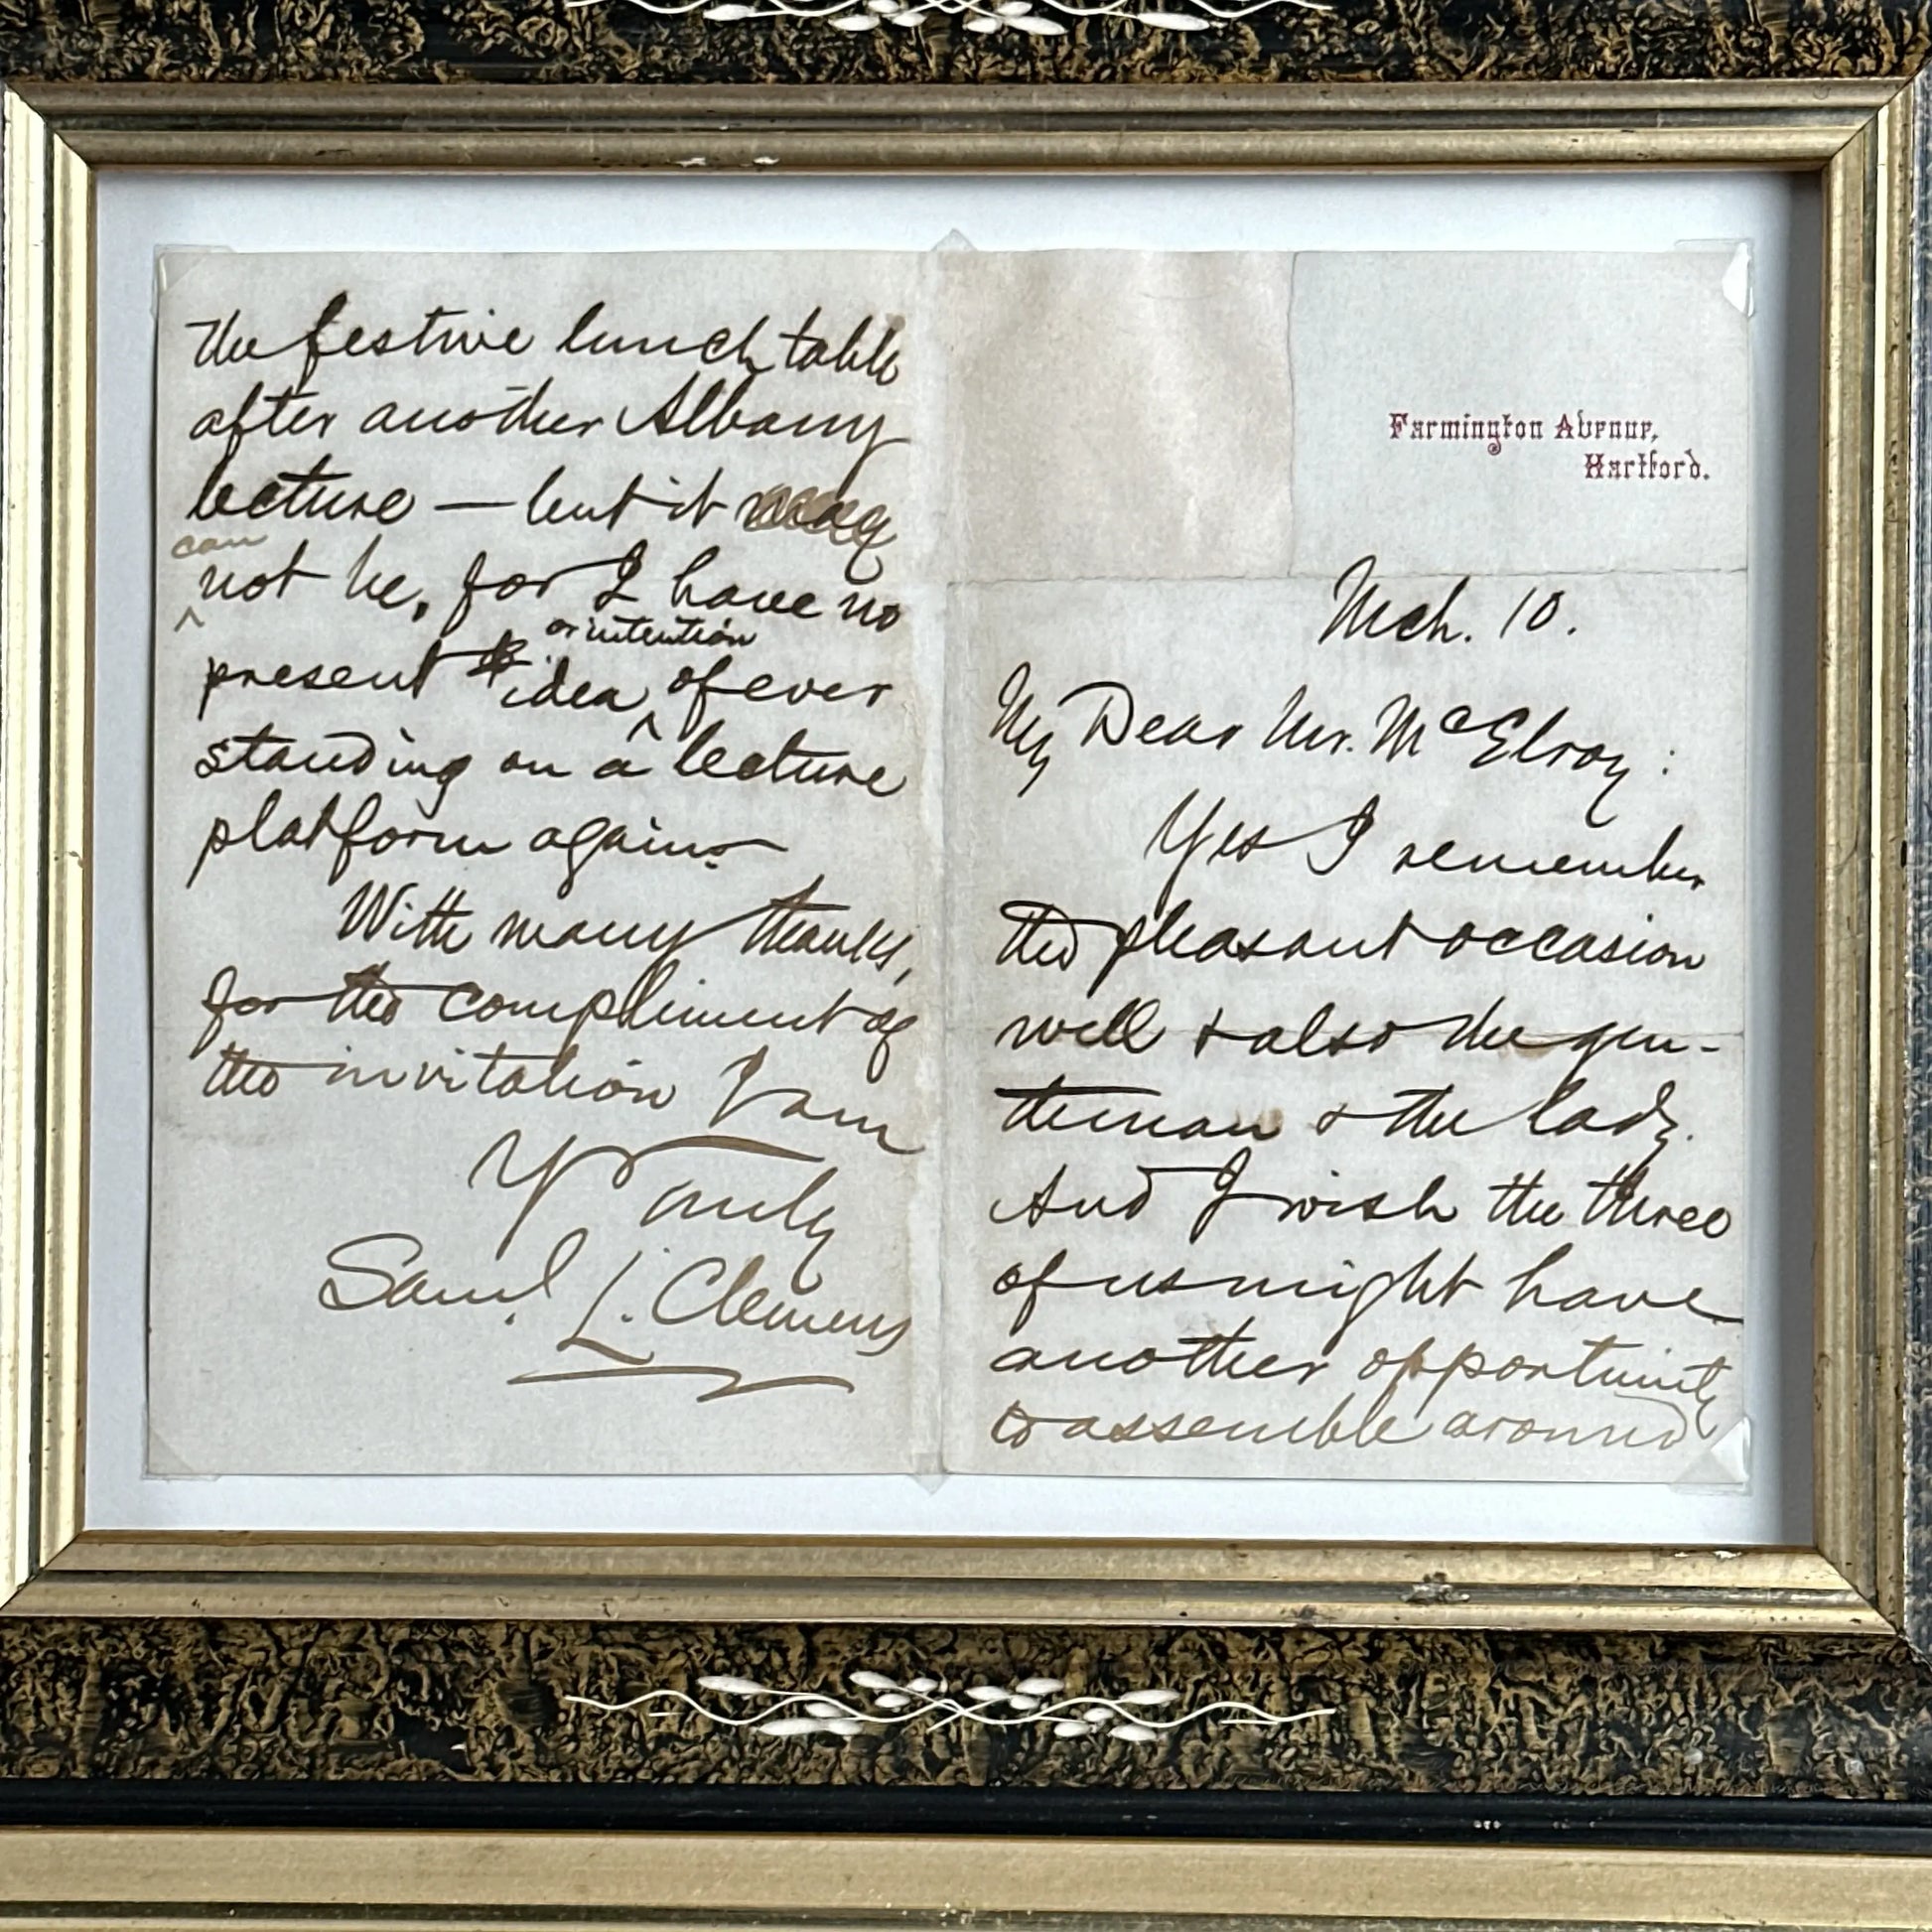 Farmington Avenue,
Hartford.
Mch. 10.
My Dear Mr. McElroy:
Yes I remember
the pleasant occasion
well & also the gen-
tleman & the lady.
And I wish the three
of us might have
another opportunity
to assemble around
the festive lunch table
after another Albany
lecture — but it may
can
not be, for I have no
or intention
present idea of ever
standing on a lecture
platform again.
With many thanks,
for the compliment of
the invitation I am
Yr truly
Saml. L. Clemens